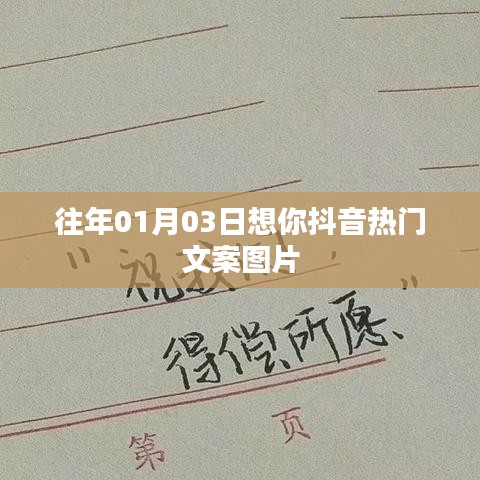 往年01月03日想你抖音热门
文案图片
“祝我们
得偿所愿”
第 页